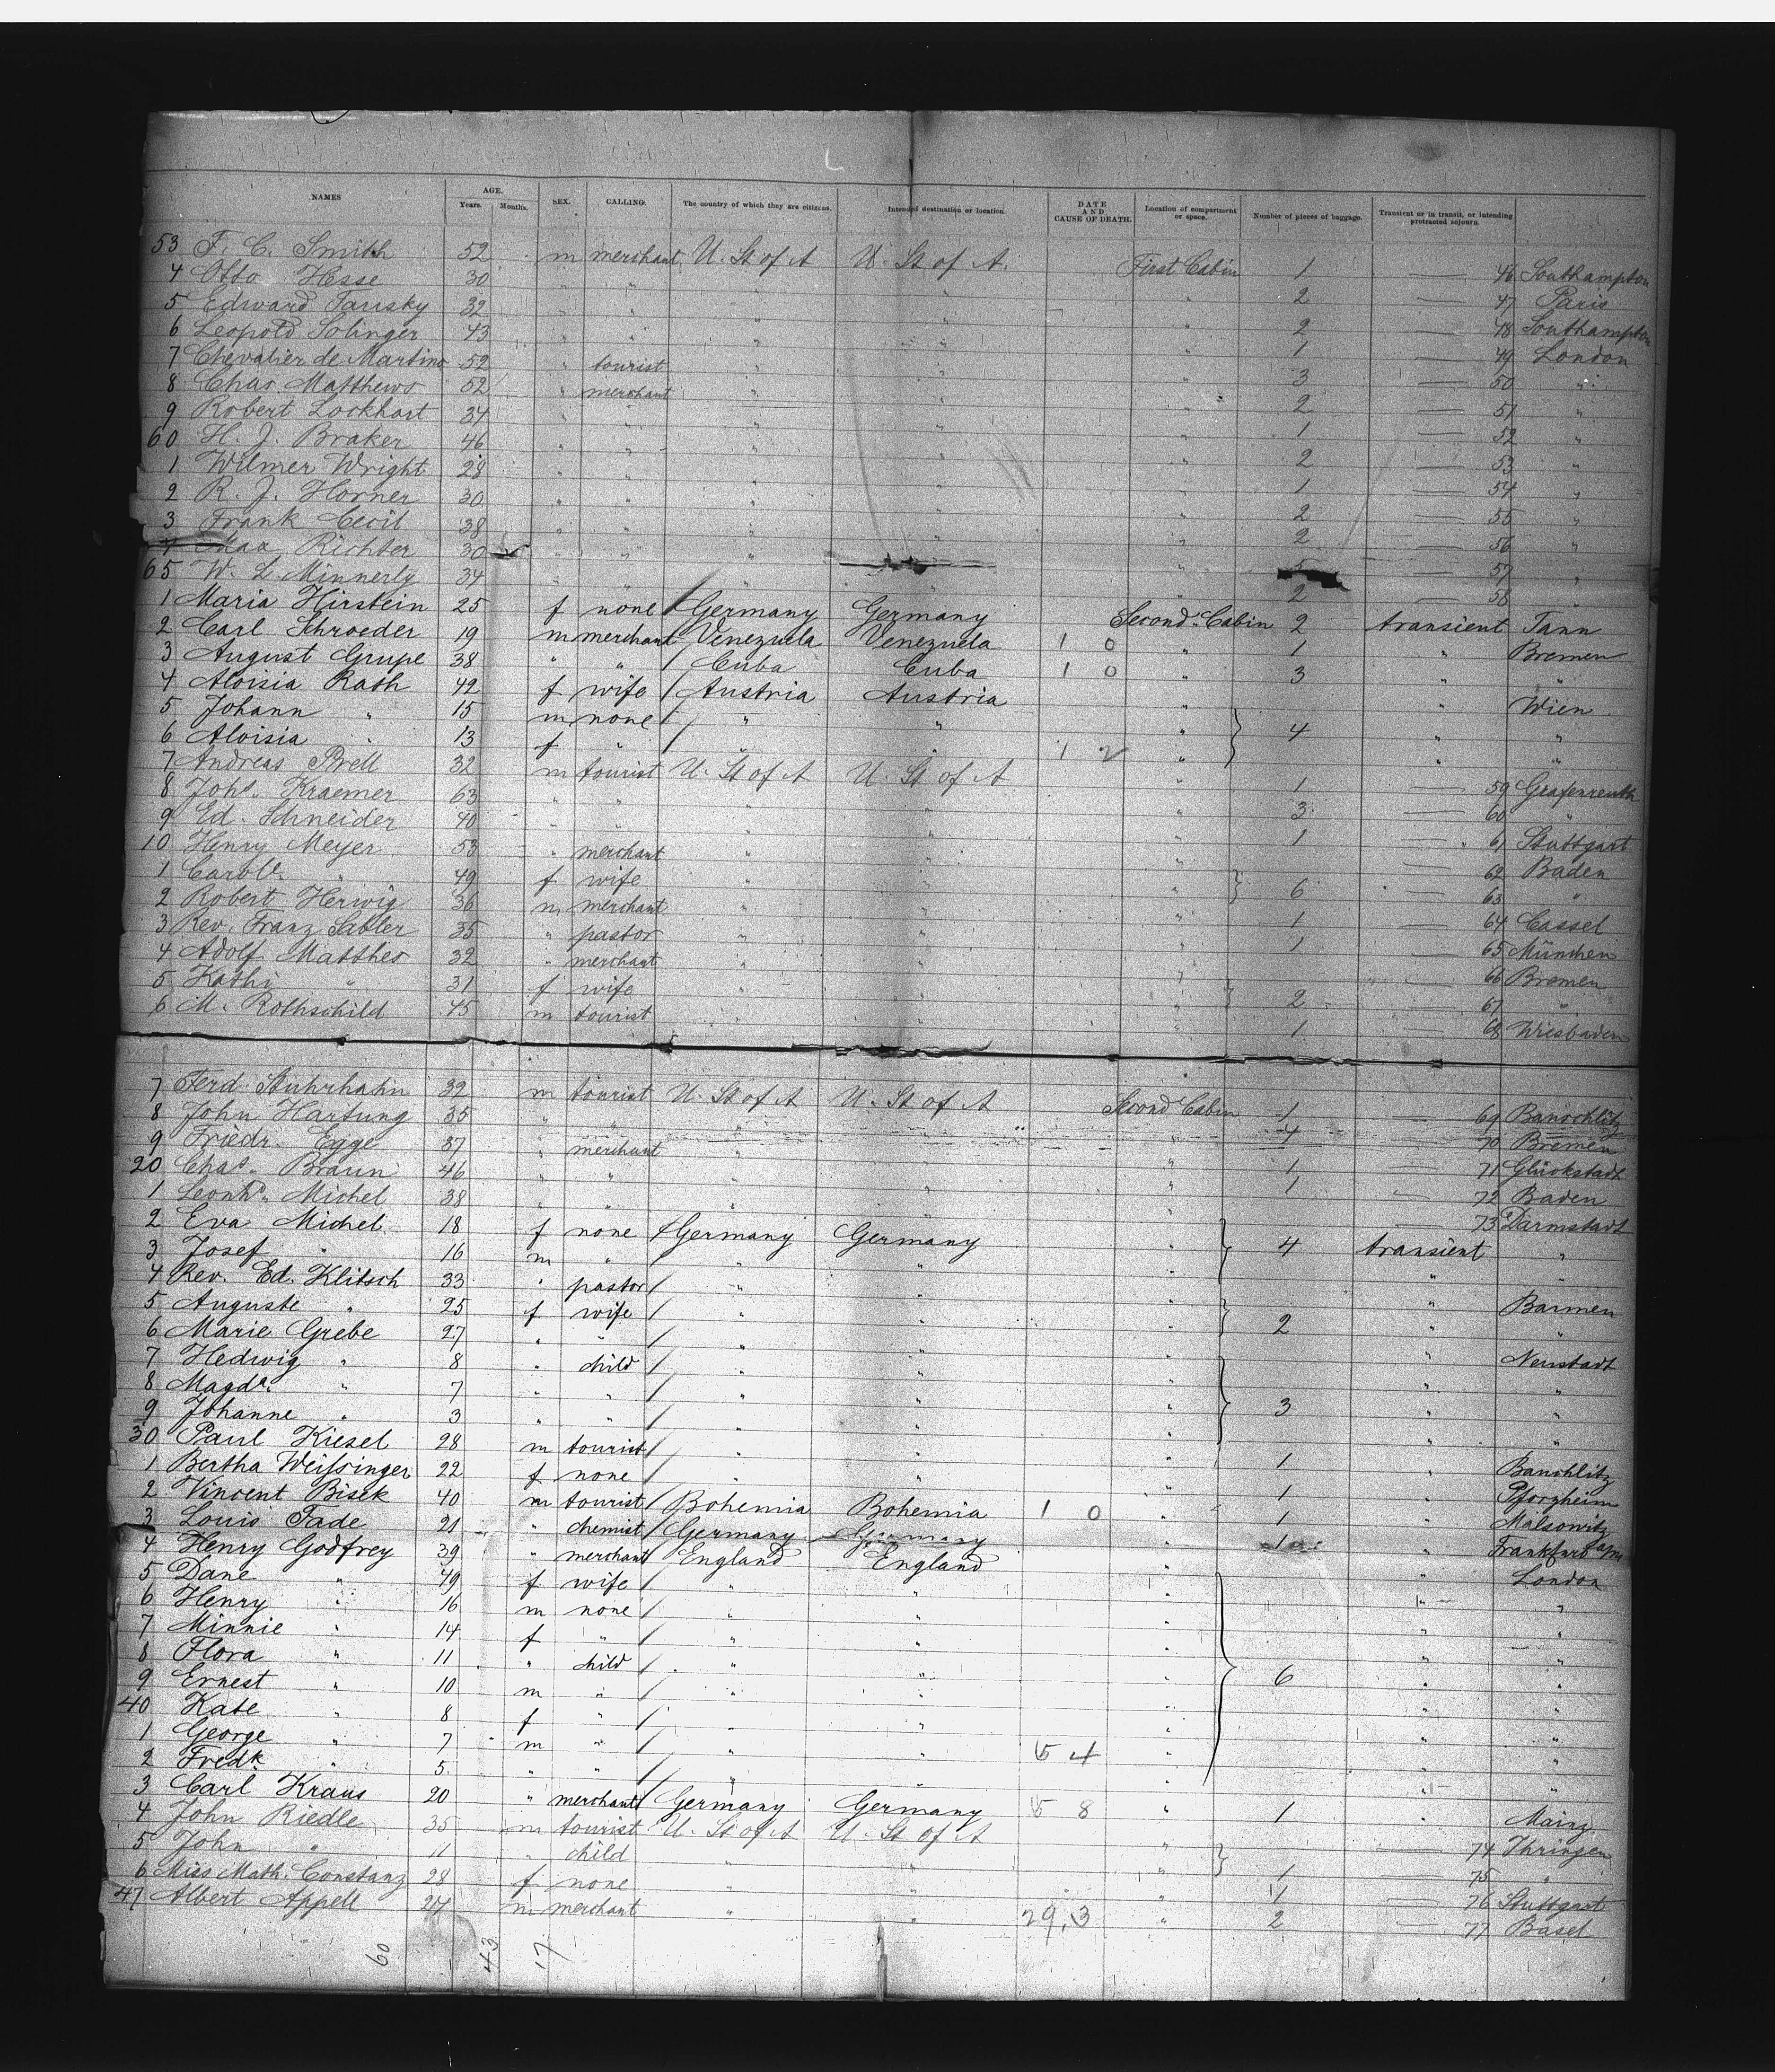 NAMES AGE. Years. Months. SEX. CALLING. The country of which they are citizens. Intended destination or location. DATE AND CAUSE OF DEATH. Location of compartment or space. Number of pieces of baggage. Transient or in transit, or intending protracted sojourn.
53 F. C. Smith 52 m merchant U. St of A U. St of A. First Cabin 1 — 46 Southampton
4 Otto Hesse 30 " " " " " 2 — 47 Paris
5 Edward Tansky 32 " " " " " 2 — 48 Southampton
6 Leopold Solinger 43 " " " " " 1 — 49 London
7 Chevalier de Martino 52 " tourist " " " 3 — 50 "
8 Chas. Matthews 52 " merchant " " " 2 — 51 "
9 Robert Lockhart 34 " " " " " 1 — 52 "
60 H. J. Braker 46 " " " " " 2 — 53 "
1 Wilmer Wright 28 " " " " " 1 — 54 "
2 R. J. Horner 30 " " " " " 2 — 55 "
3 Frank Cecil 38 " " " " " 2 — 56 "
4 Max Richter 30 " " " " " 5 — 57 "
65 W. L. Minnerly 34 " " " " " 2 — 58 "
1 Maria Hirstein 25 f none / Germany Germany Second Cabin 2 transient Tann
2 Carl Schroeder 19 m merchant Venezuela Venezuela 1 0 " 1 " Bremen
3 August Grupe 38 " " / Cuba Cuba 1 0 " 3 " "
4 Aloisia Rath 42 f wife / Austria Austria " " Wien
5 Johann " 15 m none / " " " 4 " "
6 Aloisia " 13 f " / " " 1 2 " " "
7 Andreas Prell 32 m tourist U. St of A U. St of A " 1 — 59 Grafenreuth
8 Johs. Kraemer 63 " " " " " 3 — 60 "
9 Ed. Schneider 40 " " " " " 1 — 61 Stuttgart
10 Henry Meyer 53 " merchant " " " — 62 Baden
1 Carole. " 49 f wife " " " 6 — 63 "
2 Robert Herwig 36 m merchant " " " 1 — 64 Cassel
3 Rev. Franz Sabler 35 " pastor " " " 1 — 65 München
4 Adolf Matthes 32 " merchant " " " — 66 Bremen
5 Kathi " 31 f wife " " " 2 — 67 "
6 M. Rothschild 45 m tourist " " " 1 — 68 Wiesbaden
7 Ferd. Stuhrhahn 32 m tourist U. St of A U. St of A Second Cabin 1 — 69 Banschlitz
8 John Hartung 35 " " " " " 4 — 70 Bremen
9 Friedr. Egge 37 " merchant " " " 1 — 71 Glückstadt
20 Chas. Braun 46 " " " " " 1 — 72 Baden
1 Leonhd. Michel 38 " " " " " — 73 Darmstadt
2 Eva Michel 18 f none / Germany Germany " 4 transient "
3 Josef " 16 m " " " " " "
4 Rev. Ed. Klitsch 33 " pastor / " " " " Barmen
5 Auguste " 25 f wife / " " " 2 " "
6 Marie Grebe 27 " " / " " " " Neustadt
7 Hedwig " 8 " child / " " " " "
8 Magda. " 7 " " / " " " 3 " "
9 Johanne " 3 " " / " " " " "
30 Paul Kiesel 28 m tourist / " " " 1 " Banschlitz
1 Bertha Weissinger 22 f none / " " " 1 " Pforzheim
2 Vincent Bisek 40 m tourist / Bohemia Bohemia 1 0 " 1 " Malsowitz
3 Louis Fade 21 " chemist / Germany Germany " 1 " Frankfurt a/m
4 Henry Godfrey 39 " merchant / England England " " London
5 Dane " 49 f wife / " " " " "
6 Henry " 16 m none / " " " " "
7 Minnie " 14 f " / " " " " "
8 Flora " 11 " child / " " " 6 " "
9 Ernest " 10 m " / " " " " "
40 Kate " 8 f " / " " " " "
1 George " 7 m " / " " 5 4 " " "
2 Fredk. " 5 " " / " " " " "
3 Carl Kraus 20 " merchant / Germany Germany 5 8 " 1 " Mainz
4 John Riedle 35 m tourist U. St of A U. St of A " — 74 Thringen
5 John " 11 " child " " " 1 — 75 "
6 Miss Math. Constanz 28 f none " " " 1 — 76 Stuttgart
47 Albert Appell 24 m merchant " " 29.3 " 2 — 77 Basel
60 43 17